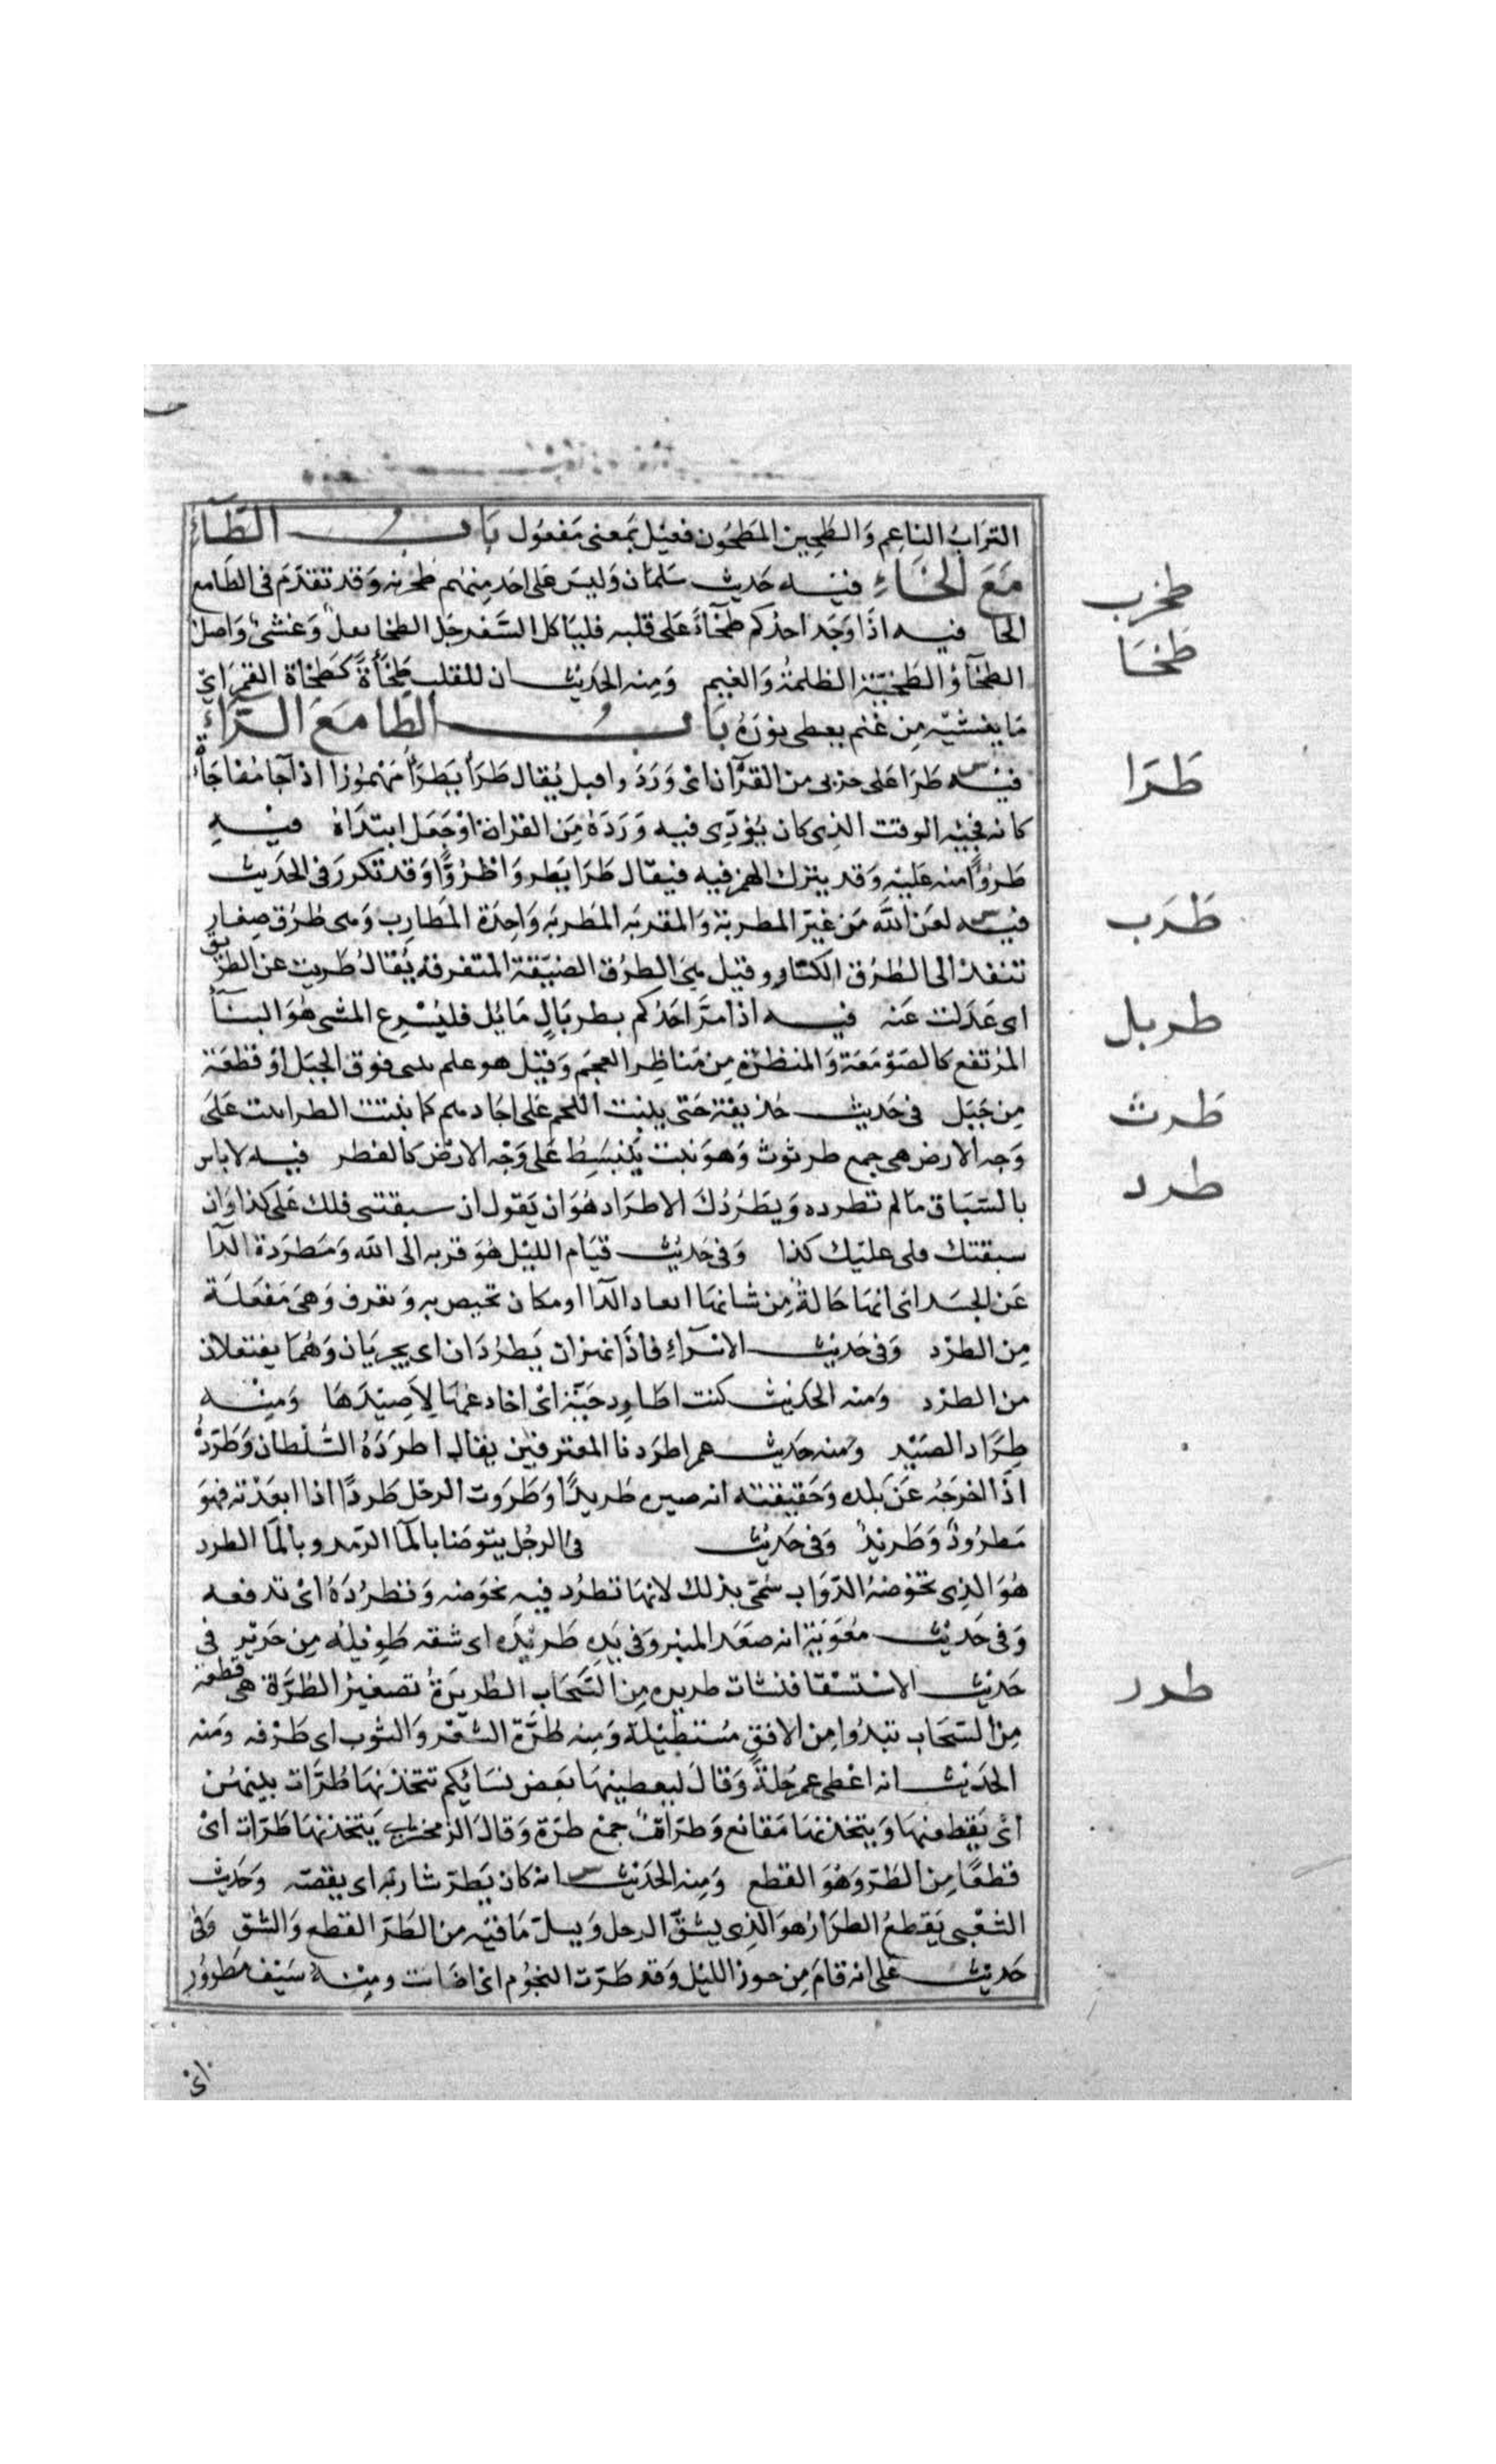 التراب الناعم والطحين المطحون فعيل بمعنى مفعول باب الطاء
مع الخاء فيه حديث سلمان وليس على احد منهم طخربه وقد تقدم فى الطا مع
الحا فيه اذا وجد احدكم طخاء على قلبه فلياكل السفرجل الطخا ثقل وغشى واصل
الطخاء والطخية الظلمة والغيم ومنه الحديث ان للقلب طخأة كطخاة القمر اى
ما يغشيه من غيم يغطى نوره باب الطا مع الراء
فيه طرا على حزبى من القرآن اى ورد واقبل يقال طرأ يطرأ مهموزا اذا جا مفاجاة
كانه فجئه الوقت الذى كان يؤدى فيه ورده من القران او جعل ابتداه فيه
طروًا منه عليه وقد يترك الهمز فيه فيقال طرا يطروا طروًا وقد تكرر فى الحديث
فيه لعن الله من غير المطربة والمقربه المطربه واحدة المطارب وهى طرق صغار
تنفذ الى الطرق الكبار وقيل هى الطرق الضيقة المتفرقه يقال طربت عن الطريق
اى عدلت عنه فيه اذا مر احدكم بطربال مائل فليسرع المشى هو البنآ
المرتفع كالصومعة والمنظرة من مناظر العجم وقيل هو علم يبنى فوق الجبل او قطعة
من جبل فى حديث حذيفة حتى ينبت اللحم على اجسادهم كما ينبت الطراثيت على
وجه الارض هى جمع طرثوث وهو نبت ينبسط على وجه الارض كالفطر فيه لا باس
بالسباق ما لم تطرده ويطردك الاطراد هو ان يقول ان سبقتنى فلك على كذا وان
سبقتك فلى عليك كذا وفى حديث قيام الليل هو قربه الى الله ومطردة الدآ
عن الجسد اى انها حالة من شانها ابعاد الدآ او مكان تختص به وتعرف وهى مفعلة
من الطرد وفى حديث الاسرآء فاذا نهران يطردان اى يجريان وهما يفتعلان
من الطرد ومنه الحديث كنت اطارد حية اى اخادعها لاصيدها ومنه
طراد الصيد ومنه حديث عمر اطردنا المعترفين يقال اطرده السلطان وطرده
اذا اخرجه عن بلده وحقيقته انه صيره طريدًا وطردت الرجل طردًا اذا ابعدته فهو
مطرود وطريد وفى حديث فى الرجل يتوضا بالمآ الرمد وبالمآ الطرد
هو الذى تخوضه الدواب سمى بذلك لانها تطرد فيه بخوضه وتطرده اى تدفعه
وفى حديث معوية انه صعد المنبر وفى يده طريده اى شقه طويله من حرير فى
حديث الاستسقا فنشات طريره من السحاب الطريرة تصغير الطرة هى قطعة
من السحاب تبدوا من الافق مستطيلة ومنه طرة الشعر والثوب اى طرفه ومنه
الحديث انه اعطى عمر حلة وقال ليعطينها بعض نسائكم تتخذنها طرات بينهن
اى يقطعنها ويتخذنها مقانع وطرات جمع طرة وقال الزمخشرى يتخذنها طرات اى
قطعًا من الطر وهو القطع ومنه الحديث انه كان يطر شاربه اى يقصه وحديث
الشعبى يقطع الطرار هو الذى يشق الرجل ويسل ما فيه من الطر القطع والشق وفى
حديث على انه قام من جوز الليل وقد طرت النجوم اى اضات ومنه سيف مطرور
اى
طخرب
طخا
طرا
طرب
طربل
طرث
طرد
طرر